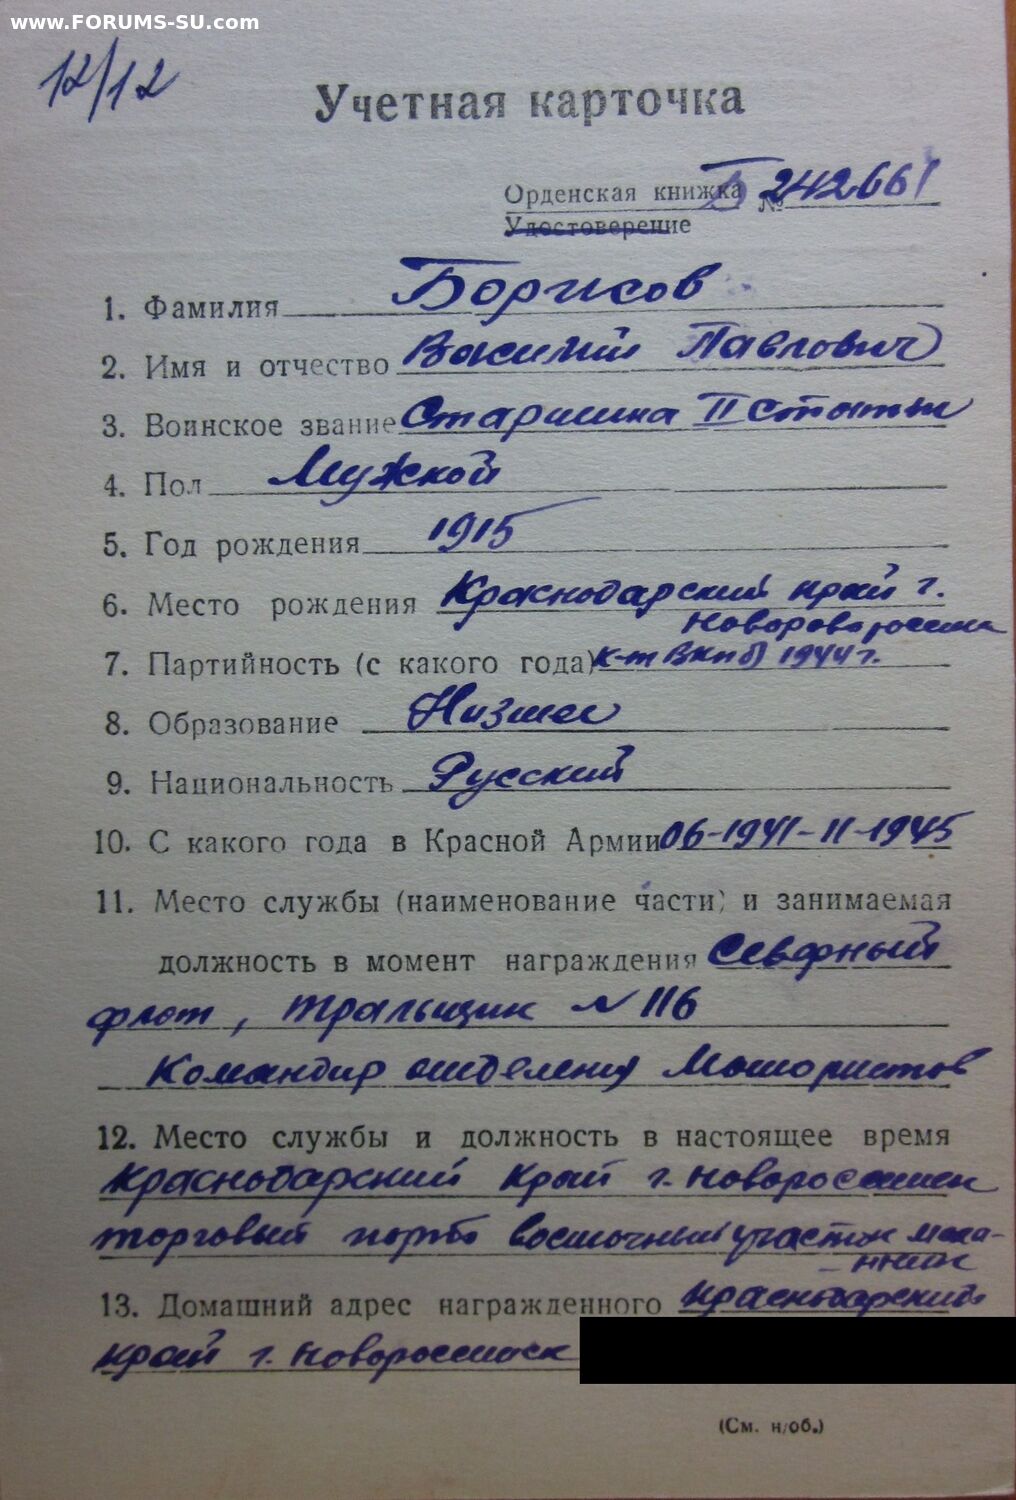 www.FORUMS-SU.com
12/12
Учетная карточка
Орденская книжка Б № 242661
Удостоверение
1. Фамилия Борисов
2. Имя и отчество Василий Павлович
3. Воинское звание Старшина II статьи
4. Пол Мужской
5. Год рождения 1915
6. Место рождения Краснодарский край г.
7. Партийность (с какого года) к-т ВКПб) 1944 г.
8. Образование Низшее
9. Национальность Русский
10. С какого года в Красной Армии 06-1941-11-1945
11. Место службы (наименование части) и занимаемая
должность в момент награждения Северный
флот, тральщик N 116
Командир отделения Мотористов
12. Место службы и должность в настоящее время
Краснодарский Край г. Новороссийск
торговый порт восточный участок меха-
ник
13. Домашний адрес награжденного Краснодарский
край г. Новороссийск
(См. н/об.)